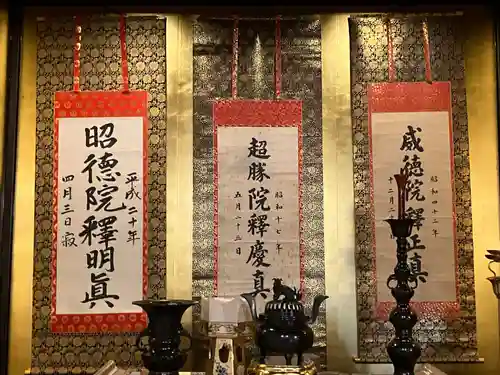 昭和四十二年
威德院釋正眞
十二月
昭和十七年
超勝院釋慶眞
五月二十三日
平成二十年
昭德院釋明眞
四月三日寂